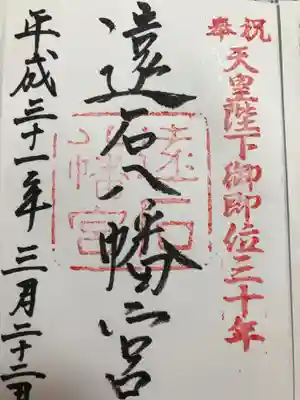 奉祝
天皇陛下御即位三十年
遠石八幡宮
遠石八幡宮
平成三十一年三月二十二日